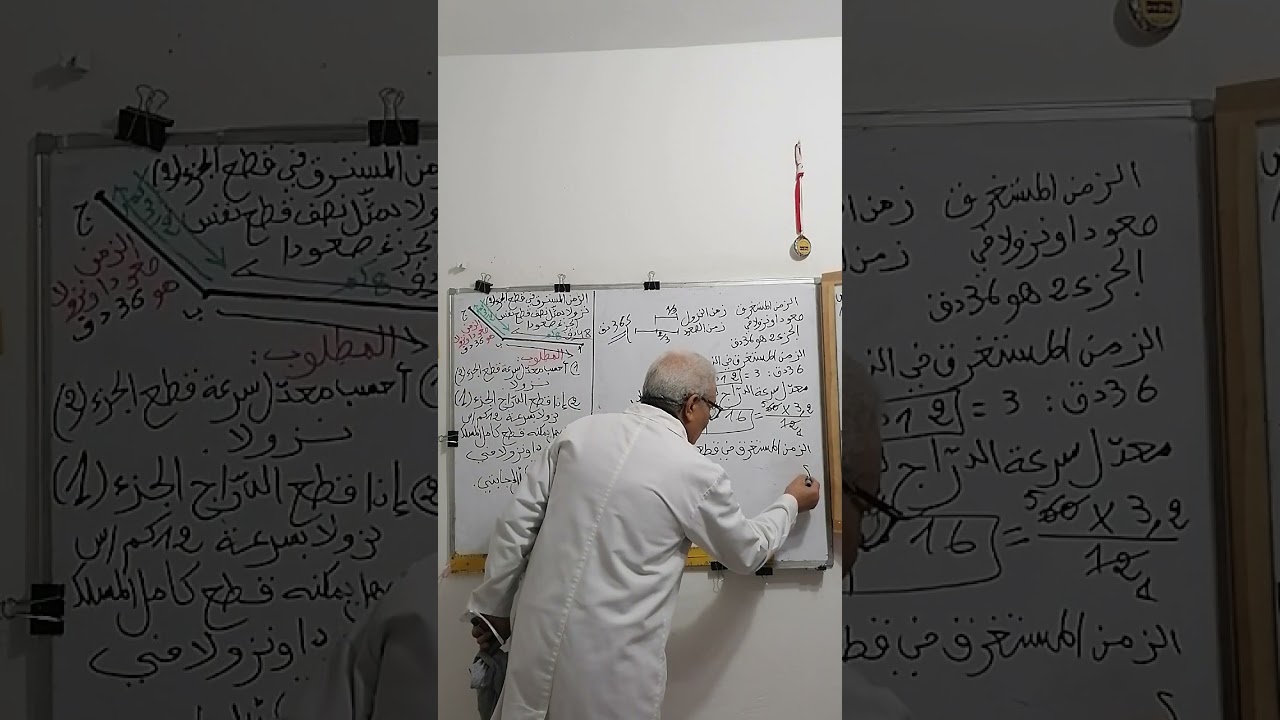 الزمن المستغرق في قطع الجزء (2)
نزولا يمثّل نصف قطع نفس
الجزء صعودا
ج
3,2
8
ب
أ
الزمن
صعودا ونزولا
هو 36 دق
المطلوب:
1) أحسب معدّل سرعة قطع الجزء (2)
نزولا
2) إذا قطع الدرّاج الجزء (1)
نزولا بسرعة 12 كم/س
يمكنه قطع كامل المسلك
ونزولا في
الزمن المستغرق
صعودا ونزولا في
الجزء 2 هو 36 دق
زمن النزول
زمن الصعود
36 دق
الزمن المستغرق في
36 دق : 3 = 12
معدّل سرعة الدرّاج
60 X 3,2
12
= 16
الزمن المستغرق في قطع